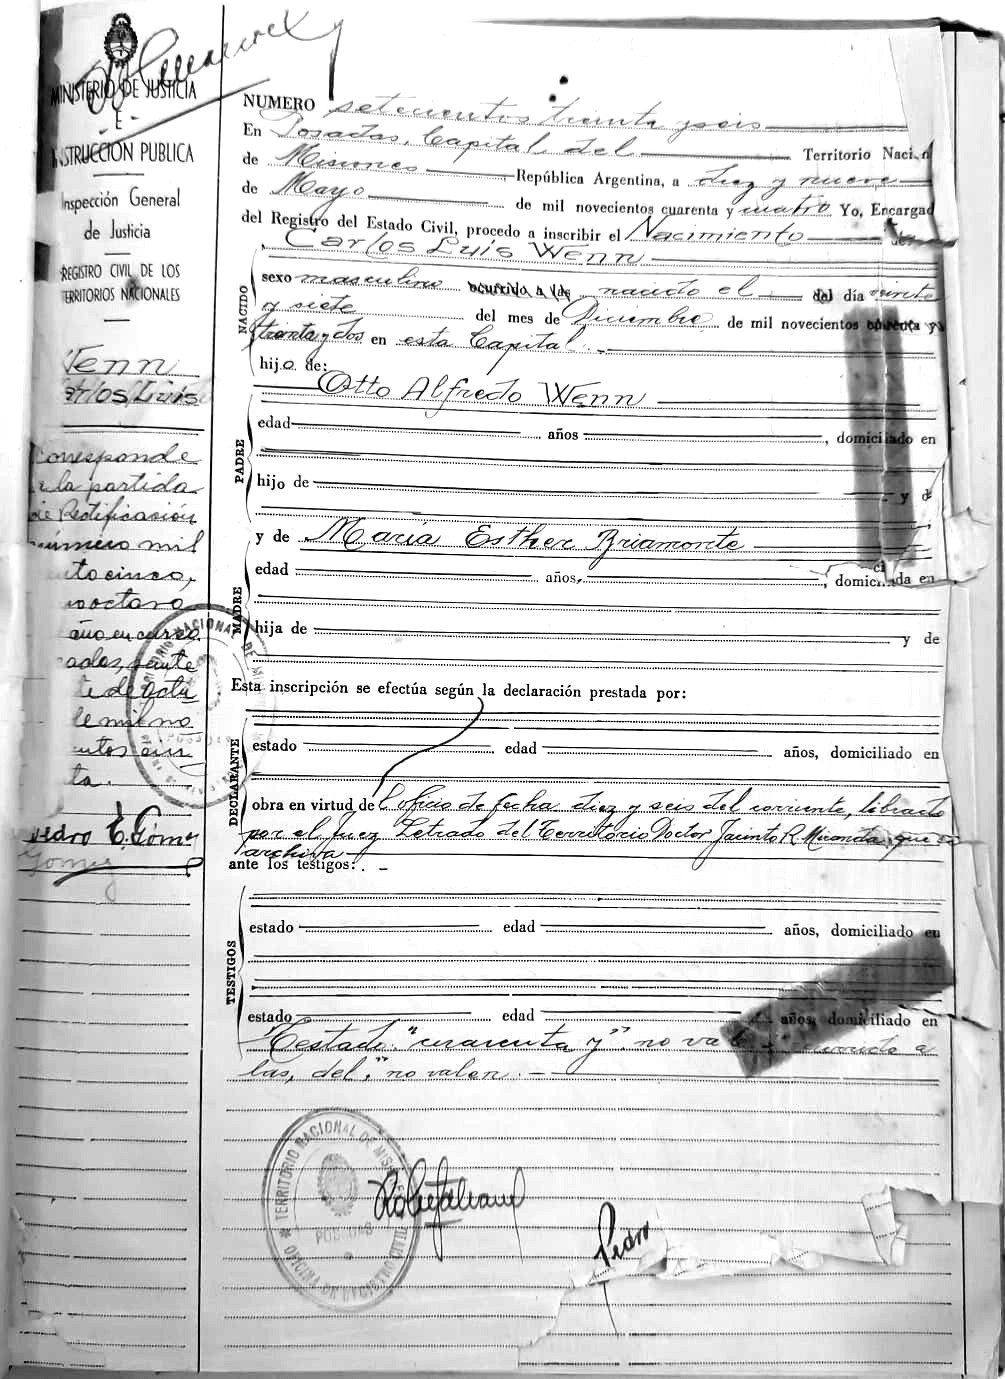 MINISTERIO DE JUSTICIA
E
INSTRUCCION PUBLICA
Inspección General
de Justicia
REGISTRO CIVIL DE LOS
TERRITORIOS NACIONALES
Wenn
Carlos Luis
Corresponde
a la partida
de Rectificación
número mil
ento cinco,
año en curso.
adas, veinte
le mil no
ta.
Pedro E. Gomez
Gomez
NUMERO setecientos treinta y seis
En Posadas, Capital del Territorio Nacion
de Misiones República Argentina, a diez y nueve
de Mayo de mil novecientos cuarenta y cuatro Yo, Encargad
del Registro del Estado Civil, procedo a inscribir el Nacimiento de
NACIDO
Carlos Luis Wenn
sexo masculino ocurrido a las nacido el del día veinte
y siete del mes de Diciembre de mil novecientos cuarenta y
treinta y dos en esta Capital.
hijo de:
PADRE
Otto Alfredo Wenn
edad años, domiciliado en
hijo de y d
MADRE
y de María Esther Briamonte
edad años, domiciliada en
hija de y de
Esta inscripción se efectúa según la declaración prestada por:
DECLARANTE
estado edad años, domiciliado en
obra en virtud del oficio de fecha diez y seis del corriente, librado
por el Juez Letrado del Territorio Doctor Jacinto R. Miranda, que se
archiva
ante los testigos:
TESTIGOS
estado edad años, domiciliado en
estado edad años, domiciliado en
Testado: "cuarenta y" no va
las, del," no valen.
TERRITORIO NACIONAL DE MIS
POSADAS
OFICINA DE REGISTRO CIVIL
Pedro